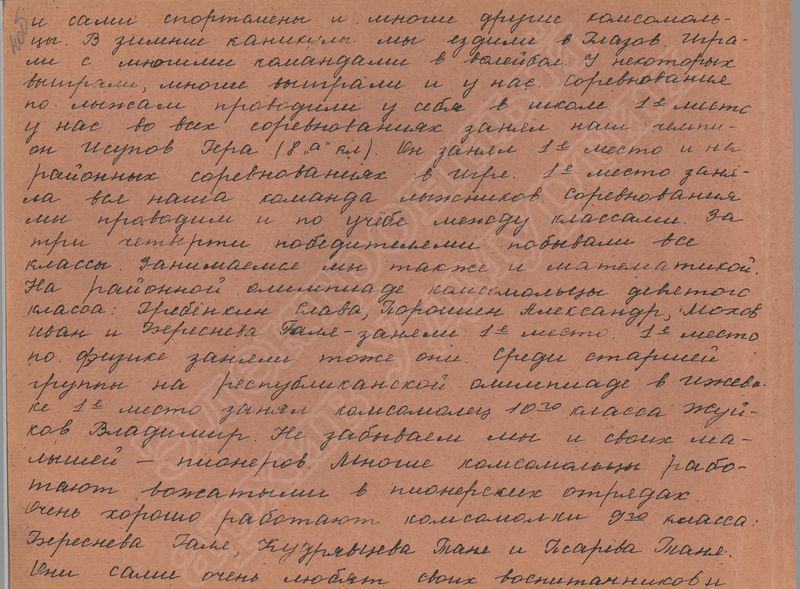 и сами спортсмены и многие другие комсомоль-
цы. В зимние каникулы мы ездили в Глазов. Игра-
ли с многими командами в волейбол. У некоторых
выиграли, многие выиграли и у нас. Соревнования
по лыжам проводили у себя в школе. 1е место
у нас во всех соревнованиях занял наш чемпи-
он Исупов Юра (8 "а" кл). Он занял 1е место и на
районных соревнованиях в Игре. 1е место заня-
ла вся наша команда лыжников соревнования
мы проводим и по учёбе между классами. За
три четверти победителями побывали все
классы. Занимаемся мы также и математикой.
На районной олимпиаде комсомольцы девятого
класса: Гребёнкин Слава, Порошин Александр, Мохов
Иван и Береснева Галя - заняли 1е место. 1е место
по физике заняли тоже они. Среди старшей
группы на республиканской олимпиаде в Ижевс-
ке 1е место занял комсомолец 10го класса Жуй-
ков Владимир. Не забываем мы и своих ма-
лышей - пионеров. Многие комсомольцы рабо-
тают вожатыми в пионерских отрядах.
Очень хорошо работают комсомолки 9го класса:
Береснева Галя, Кудрявцева Таня и Писарева Таня.
Они сами очень любят своих воспитанников и